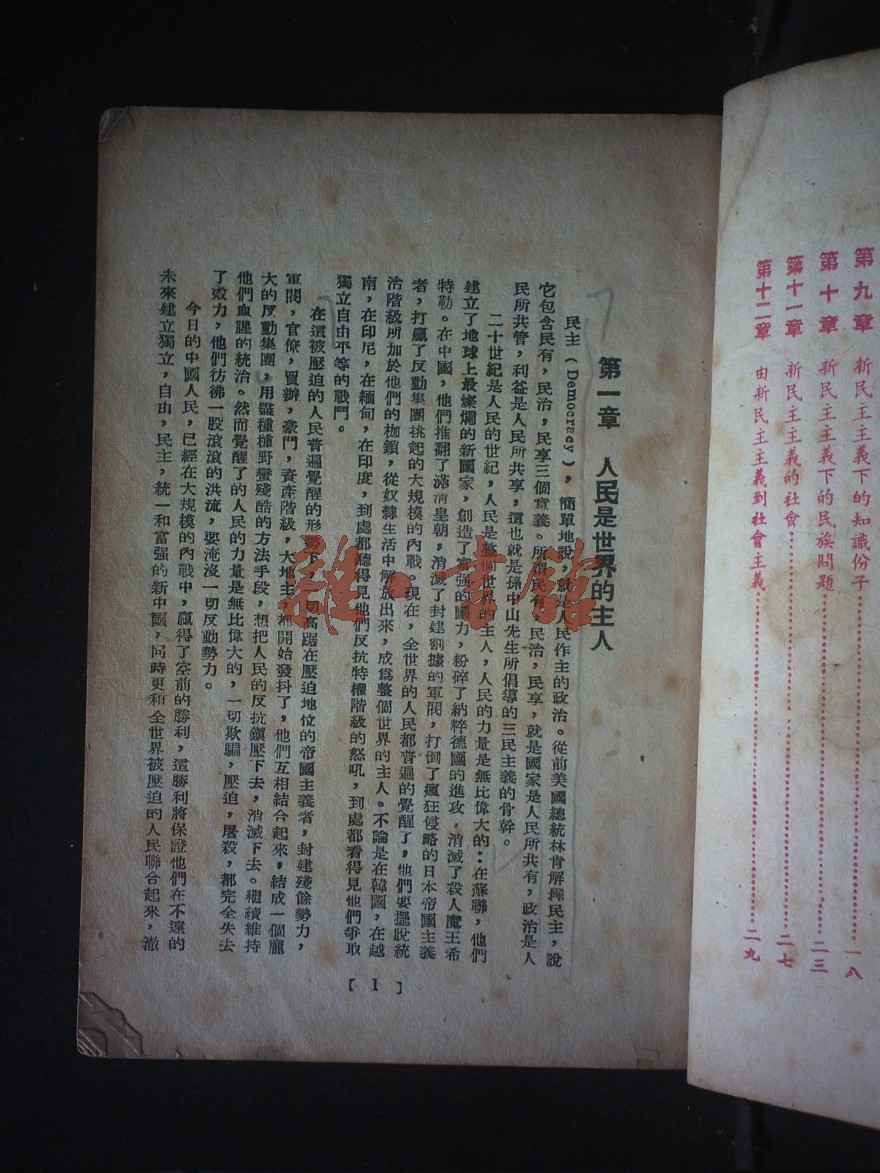 第九章　新民主主義下的知識份子……一八
第十章　新民主主義下的民族問題……二三
第十一章　新民主主義的社會……二七
第十二章　由新民主主義到社會主義……二九
第一章　人民是世界的主人
民主（Democracy），簡單地說，就是人民作主的政治。從前美國總統林肯解釋民主，說
它包含民有，民治，民享三個意義。所謂民有，民治，民享，就是國家是人民所共有，政治是人
民所共管，利益是人民所共享，這也就是孫中山先生所倡導的三民主義的骨幹。
二十世紀是人民的世紀，人民是整個世界的主人，人民的力量是無比偉大的：在蘇聯，他們
建立了地球上最燦爛的新國家，創造了富强的國力，粉碎了納粹德國的進攻，消滅了殺人魔王希
特勒。在中國，他們推翻了滿清皇朝，消滅了封建割據的軍閥，打倒了瘋狂侵略的日本帝國主義
者，打贏了反動集團挑起的大規模的內戰。現在，全世界的人民都普遍的覺醒了，他們要擺脫統
治階級所加於他們的枷鎖，從奴隸生活中解放出來，成爲整個世界的主人。不論是在韓國，在越
南，在印尼，在緬甸，在印度，到處都聽得見他們反抗特權階級的怒吼，到處都看得見他們爭取
獨立自由平等的戰鬥。
在這被壓迫的人民普遍覺醒的形勢下，一切高踞在壓迫地位的帝國主義者，封建殘餘勢力，
軍閥，官僚，買辦，豪門，資產階級，大地主，都開始發抖了，他們互相結合起來，結成一個龐
大的反動集團，用盡種種野蠻殘酷的方法手段，想把人民的反抗鎭壓下去，消滅下去。繼續維持
他們血腥的統治。然而覺醒了的人民的力量是無比偉大的，一切欺騙，壓迫，屠殺，都完全失去
了效力，他們彷彿一股滾滾的洪流，要淹沒一切反動勢力。
今日的中國人民，已經在大規模的內戰中，贏得了空前的勝利，這勝利將保證他們在不遠的
未來建立獨立，自由，民主，統一和富强的新中國，同時更和全世界被壓迫的人民聯合起來，澈
[1]
雜·書舘